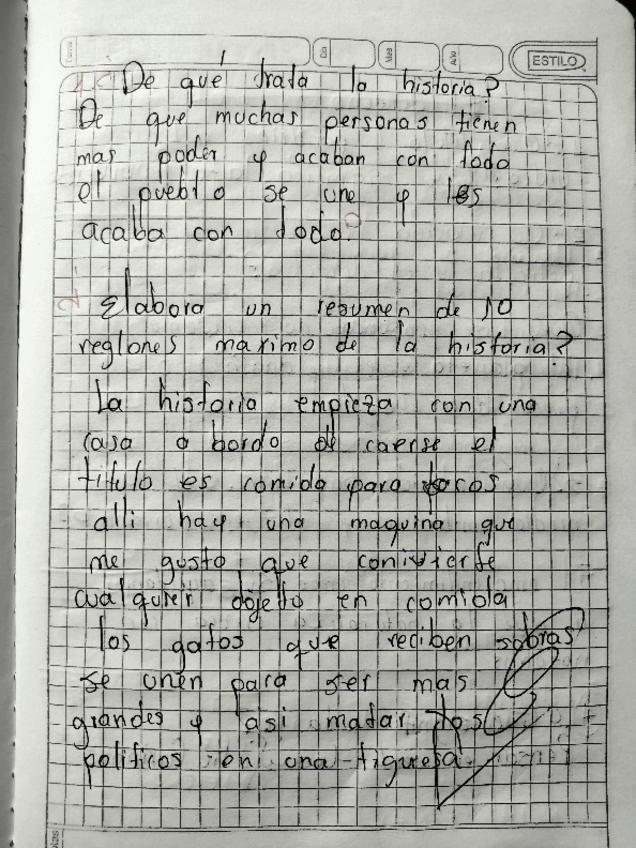 ESTILO
1. ¿De qué trata la historia?
De que muchas personas tienen
mas poder y acaban con todo
el pueblo se une y les
acaba con todo.
2. Elabora un resumen de 10
reglones maximo de la historia?
La historia empieza con una
casa a bordo de caerse el
titulo es comida para pocos
alli hay una maquina que
me gusto que convierte
cualquier objeto en comida
los gatos que reciben sobras
se unen para ser mas
grandes y asi matar los
politicos en una